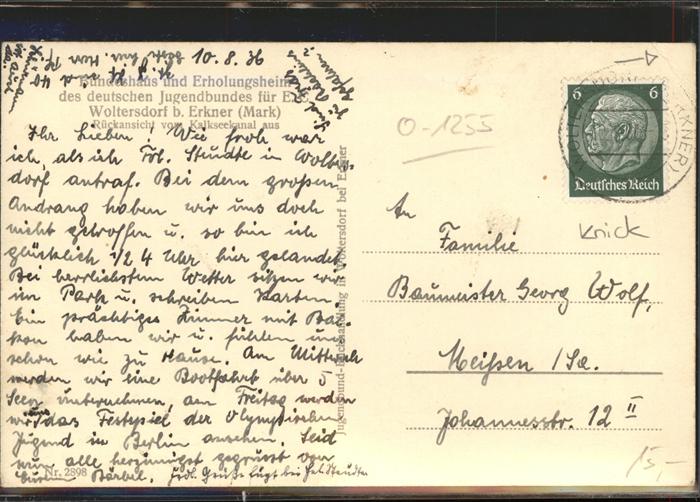 10.8.36
Bundeshaus und Erholungsheim
des deutschen Jugendbundes für E.C.
Woltersdorf b. Erkner (Mark)
Rückansicht vom Kalkseekanal aus
Ihr Lieben! Wie froh war
ich, als ich Frl. Steudte in Wolters-
dorf antraf. Bei dem großen
Andrang haben wir uns doch
nicht getroffen u. so bin ich
glücklich 1/2 4 Uhr hier gelandet.
Bei herrlichstem Wetter sitzen wir
im Park u. schreiben Karten.
Ein prächtiges Zimmer mit Bal-
kon haben wir u. fühlen uns
schon wie zu Hause. Am Mittwoch
werden wir eine Bootfahrt über 5
Seen unternehmen, am Freitag werden
wir uns das Festspiel der Olympischen
Jugend in Berlin ansehen. Seid
nun alle herzinnigst gegrüßt von
Eurer Bärbel.
Nr. 2898
Jugendbund-Buchhandlung in Woltersdorf bei Erkner
O-1255
6 6
Deutsches Reich
ERKNER)
Knick
An
Familie
Baumeister Georg Wolf,
Meißen /Sa.
Johannesstr. 12 II
15,-